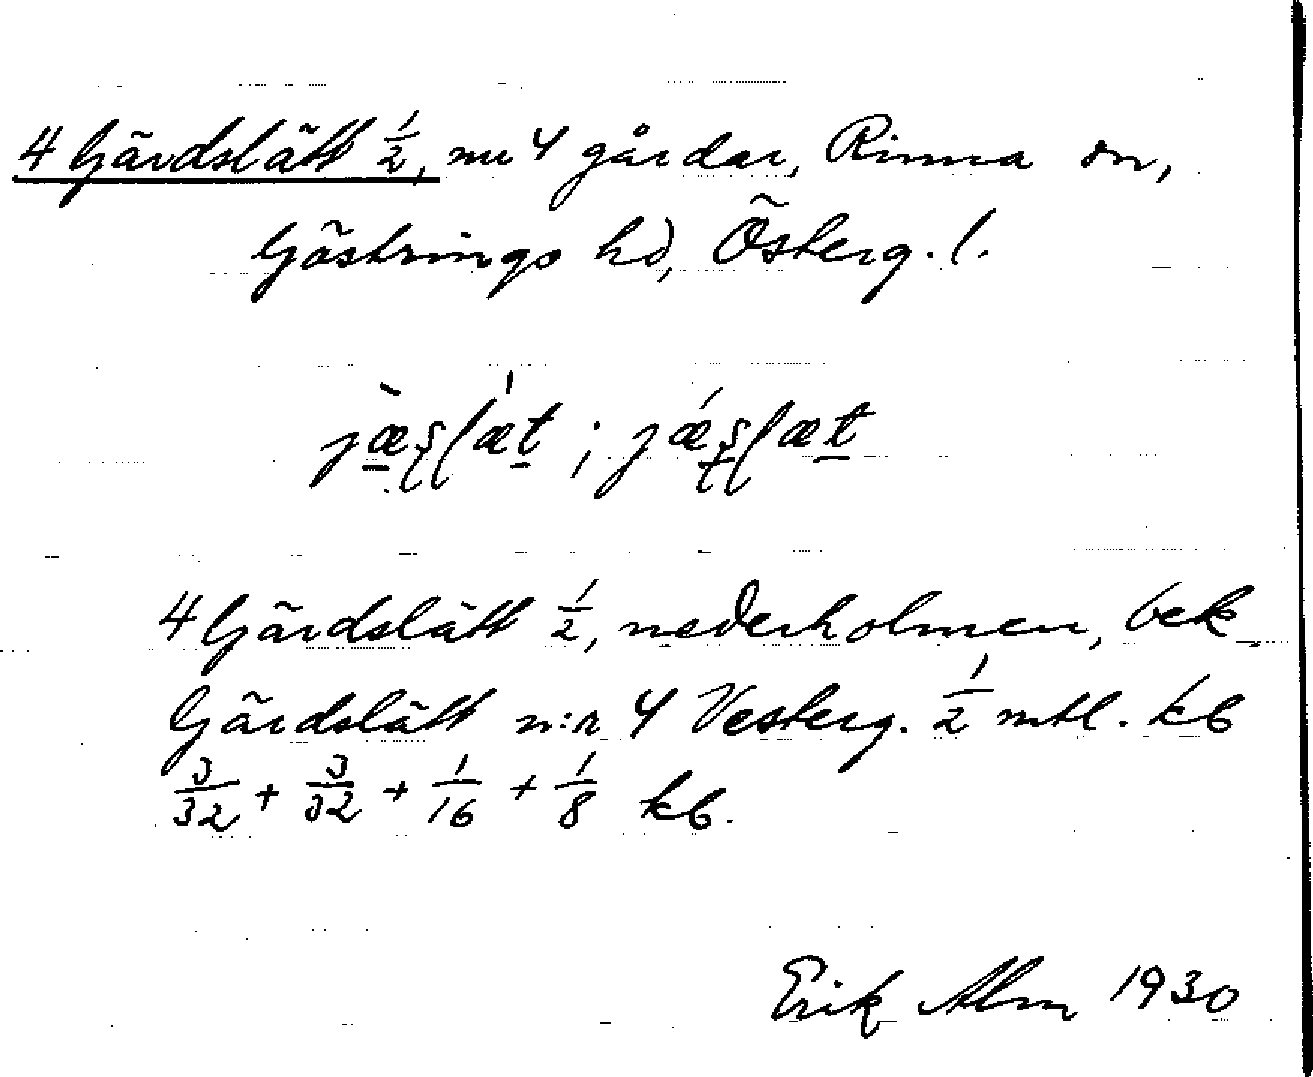 4 Gärdslätt 1/2, nu 4 gårdar, Rinna sn,
Göstrings hd, Österg. l.
jæ̀ʂlæ̍t ; jǽʂlæt
4 Gärdslätt 1/2, nederholmen, bek
Gärdslätt n:r 4 Vesterg. 1/2 mtl. kb
3/32 + 3/32 + 1/16 + 1/8 kb.
Erik Alm 1930